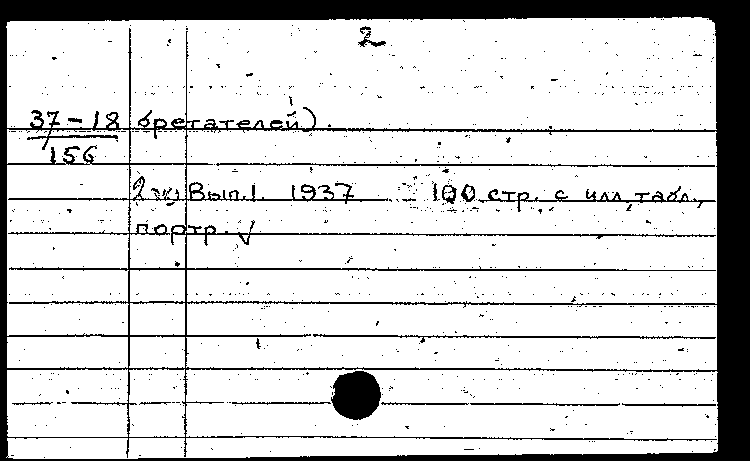 2
37-18 бретателей).
156
Вып.1. 1937 100 стр. с илл, табл.,
портр. √